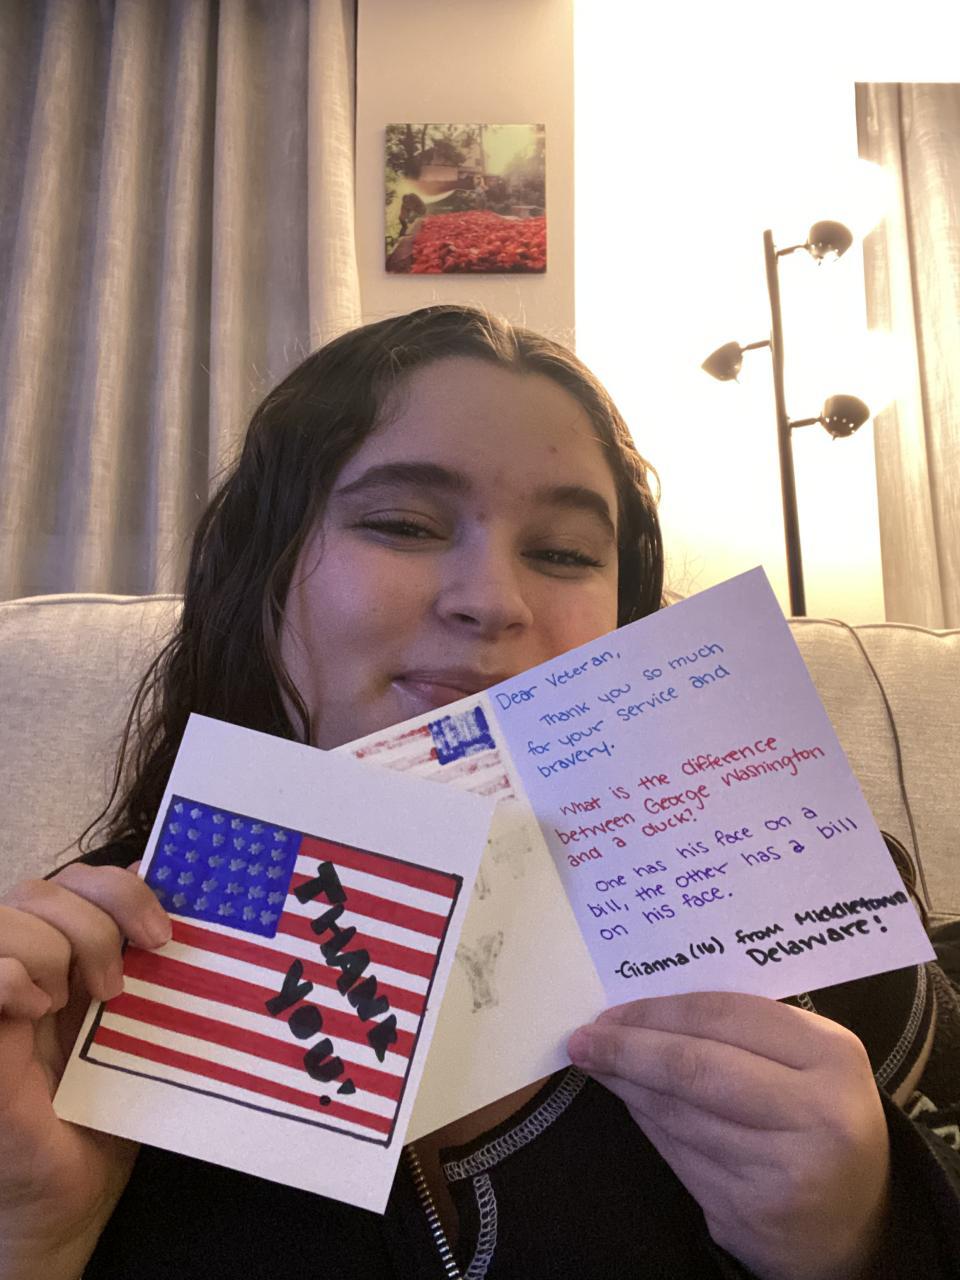 THANK
YOU!
Dear Veteran,
Thank you so much
for your service and
bravery.
What is the difference
between George Washington
and a duck?
One has his face on a
bill, the other has a bill
on his face.
-Gianna (16) from Middletown
Delaware!